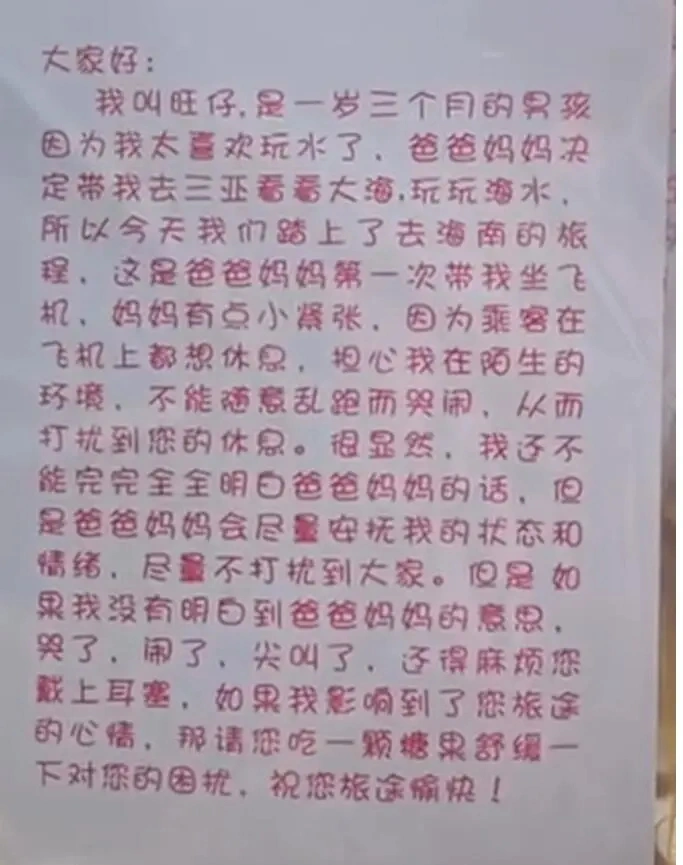 大家好：
我叫旺仔,是一岁三个月的男孩
因为我太喜欢玩水了，爸爸妈妈决
定带我去三亚看看大海,玩玩海水，
所以今天我们踏上了去海南的旅
程，这是爸爸妈妈第一次带我坐飞
机，妈妈有点小紧张，因为乘客在
飞机上都想休息，担心我在陌生的
环境，不能随意乱跑而哭闹，从而
打扰到您的休息。很显然，我还不
能完完全全明白爸爸妈妈的话，但
是爸爸妈妈会尽量安抚我的状态和
情绪，尽量不打扰到大家。但是如
果我没有明白到爸爸妈妈的意思，
哭了，闹了，尖叫了，还得麻烦您
戴上耳塞，如果我影响到了您旅途
的心情，那请您吃一颗糖果舒缓一
下对您的困扰，祝您旅途愉快！